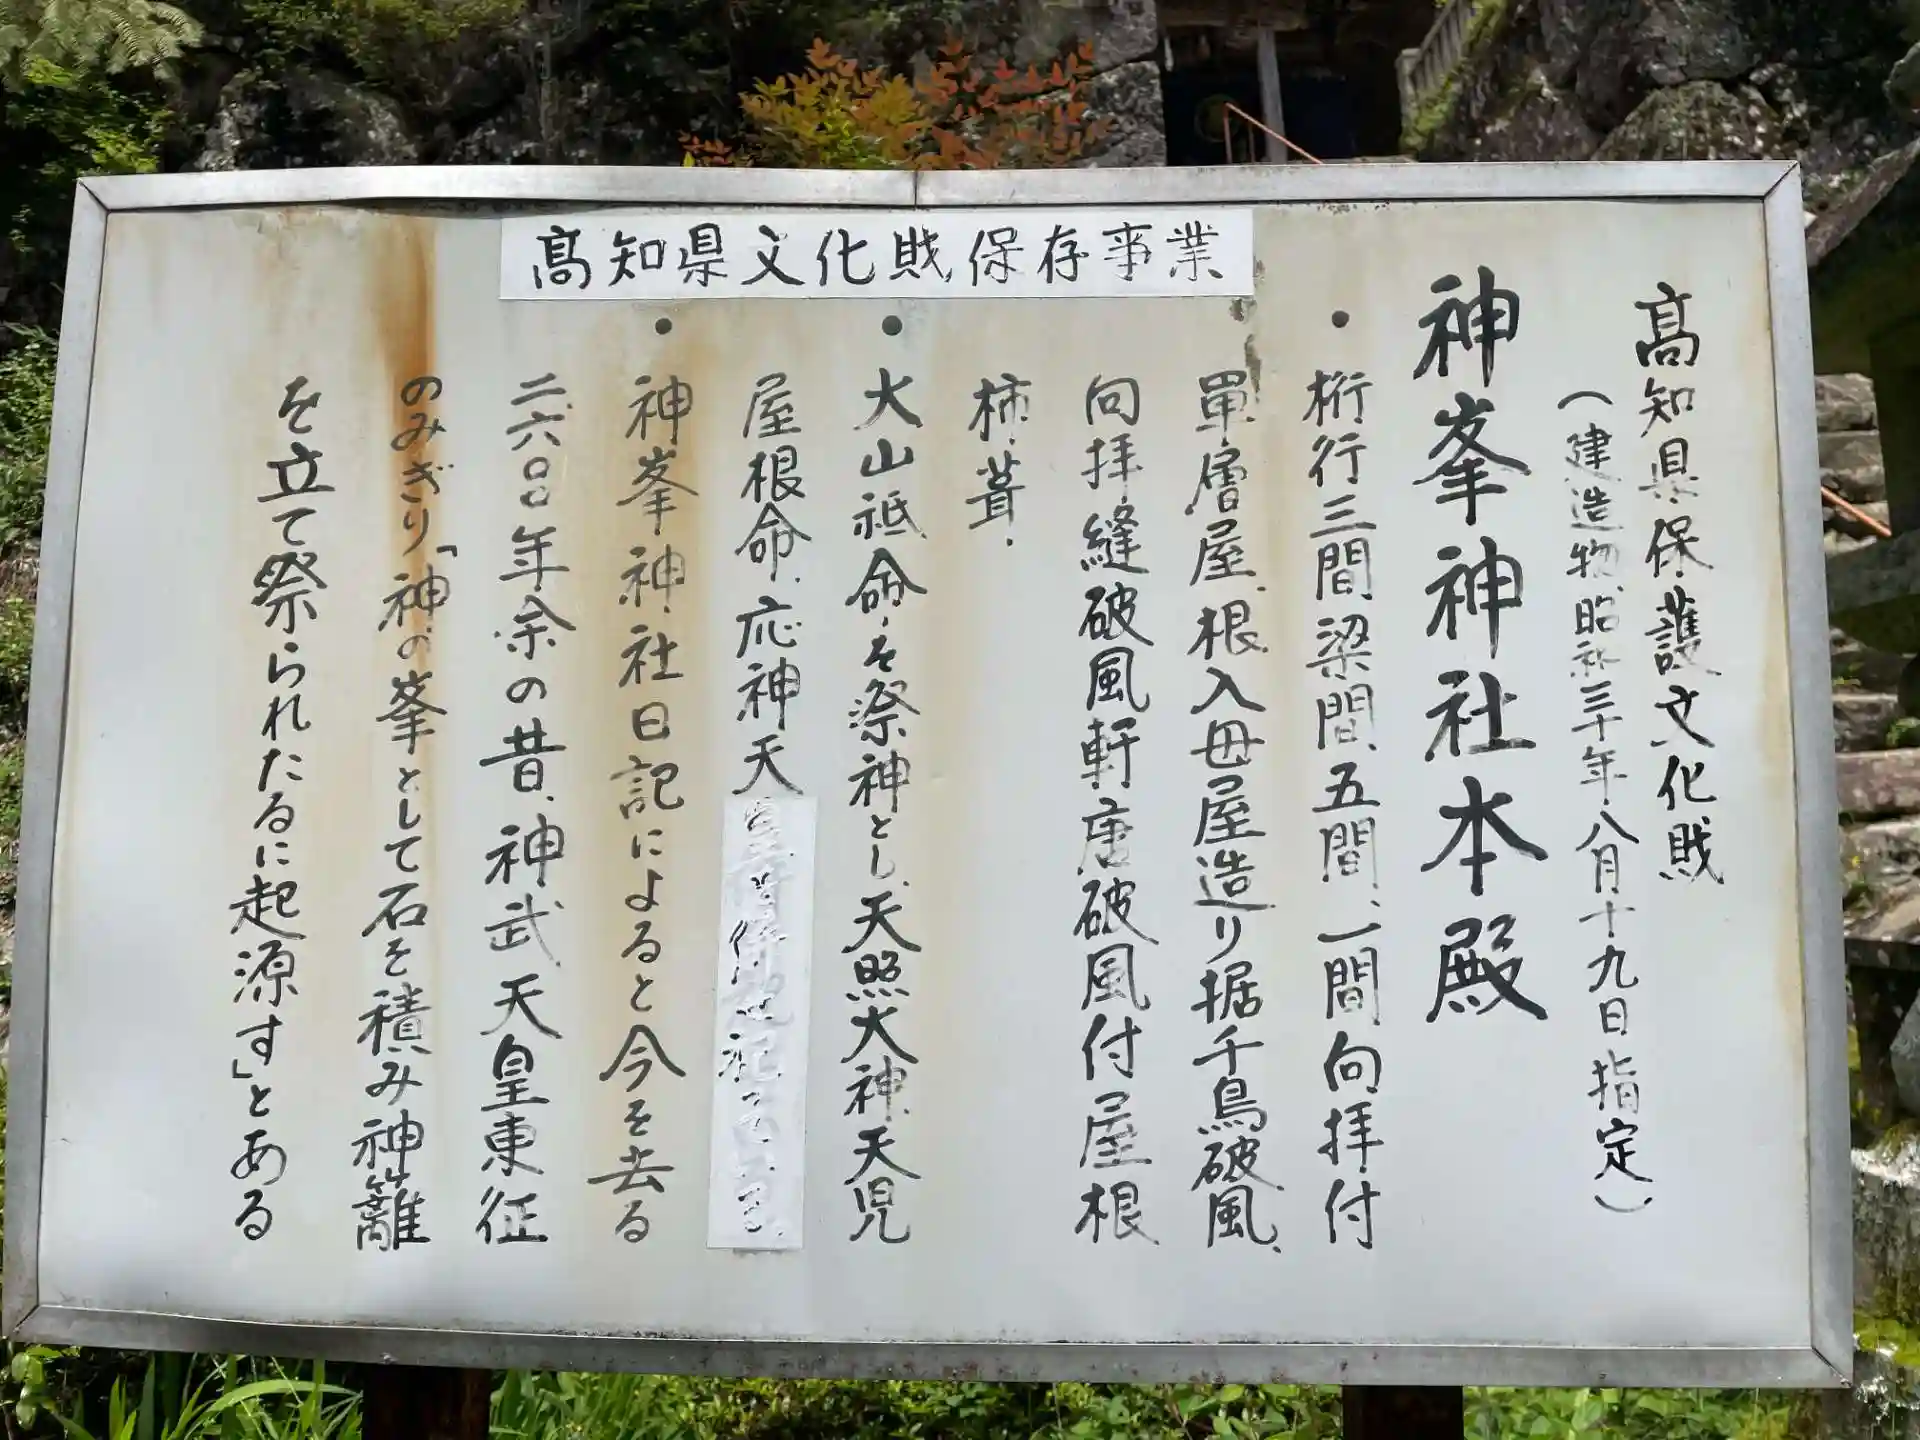 高知県文化財保存事業
高知県保護文化財
(建造物、昭和三十年八月十九日指定)
神峯神社本殿
・桁行三間、梁間、五間、一間向拝、付
単層屋、根入母屋造り据千鳥破風、
向拝縫破風軒唐破風付屋根
柿、葺.
・大山祗命を祭神とし、天照大神、天児
屋根命、応神天
・神峯神社日記によると今を去る
二、六〇〇年余の昔、神武、天皇東征
のみぎり「神の峯として石を積み神籬
を立て祭られたるに起源す」とある